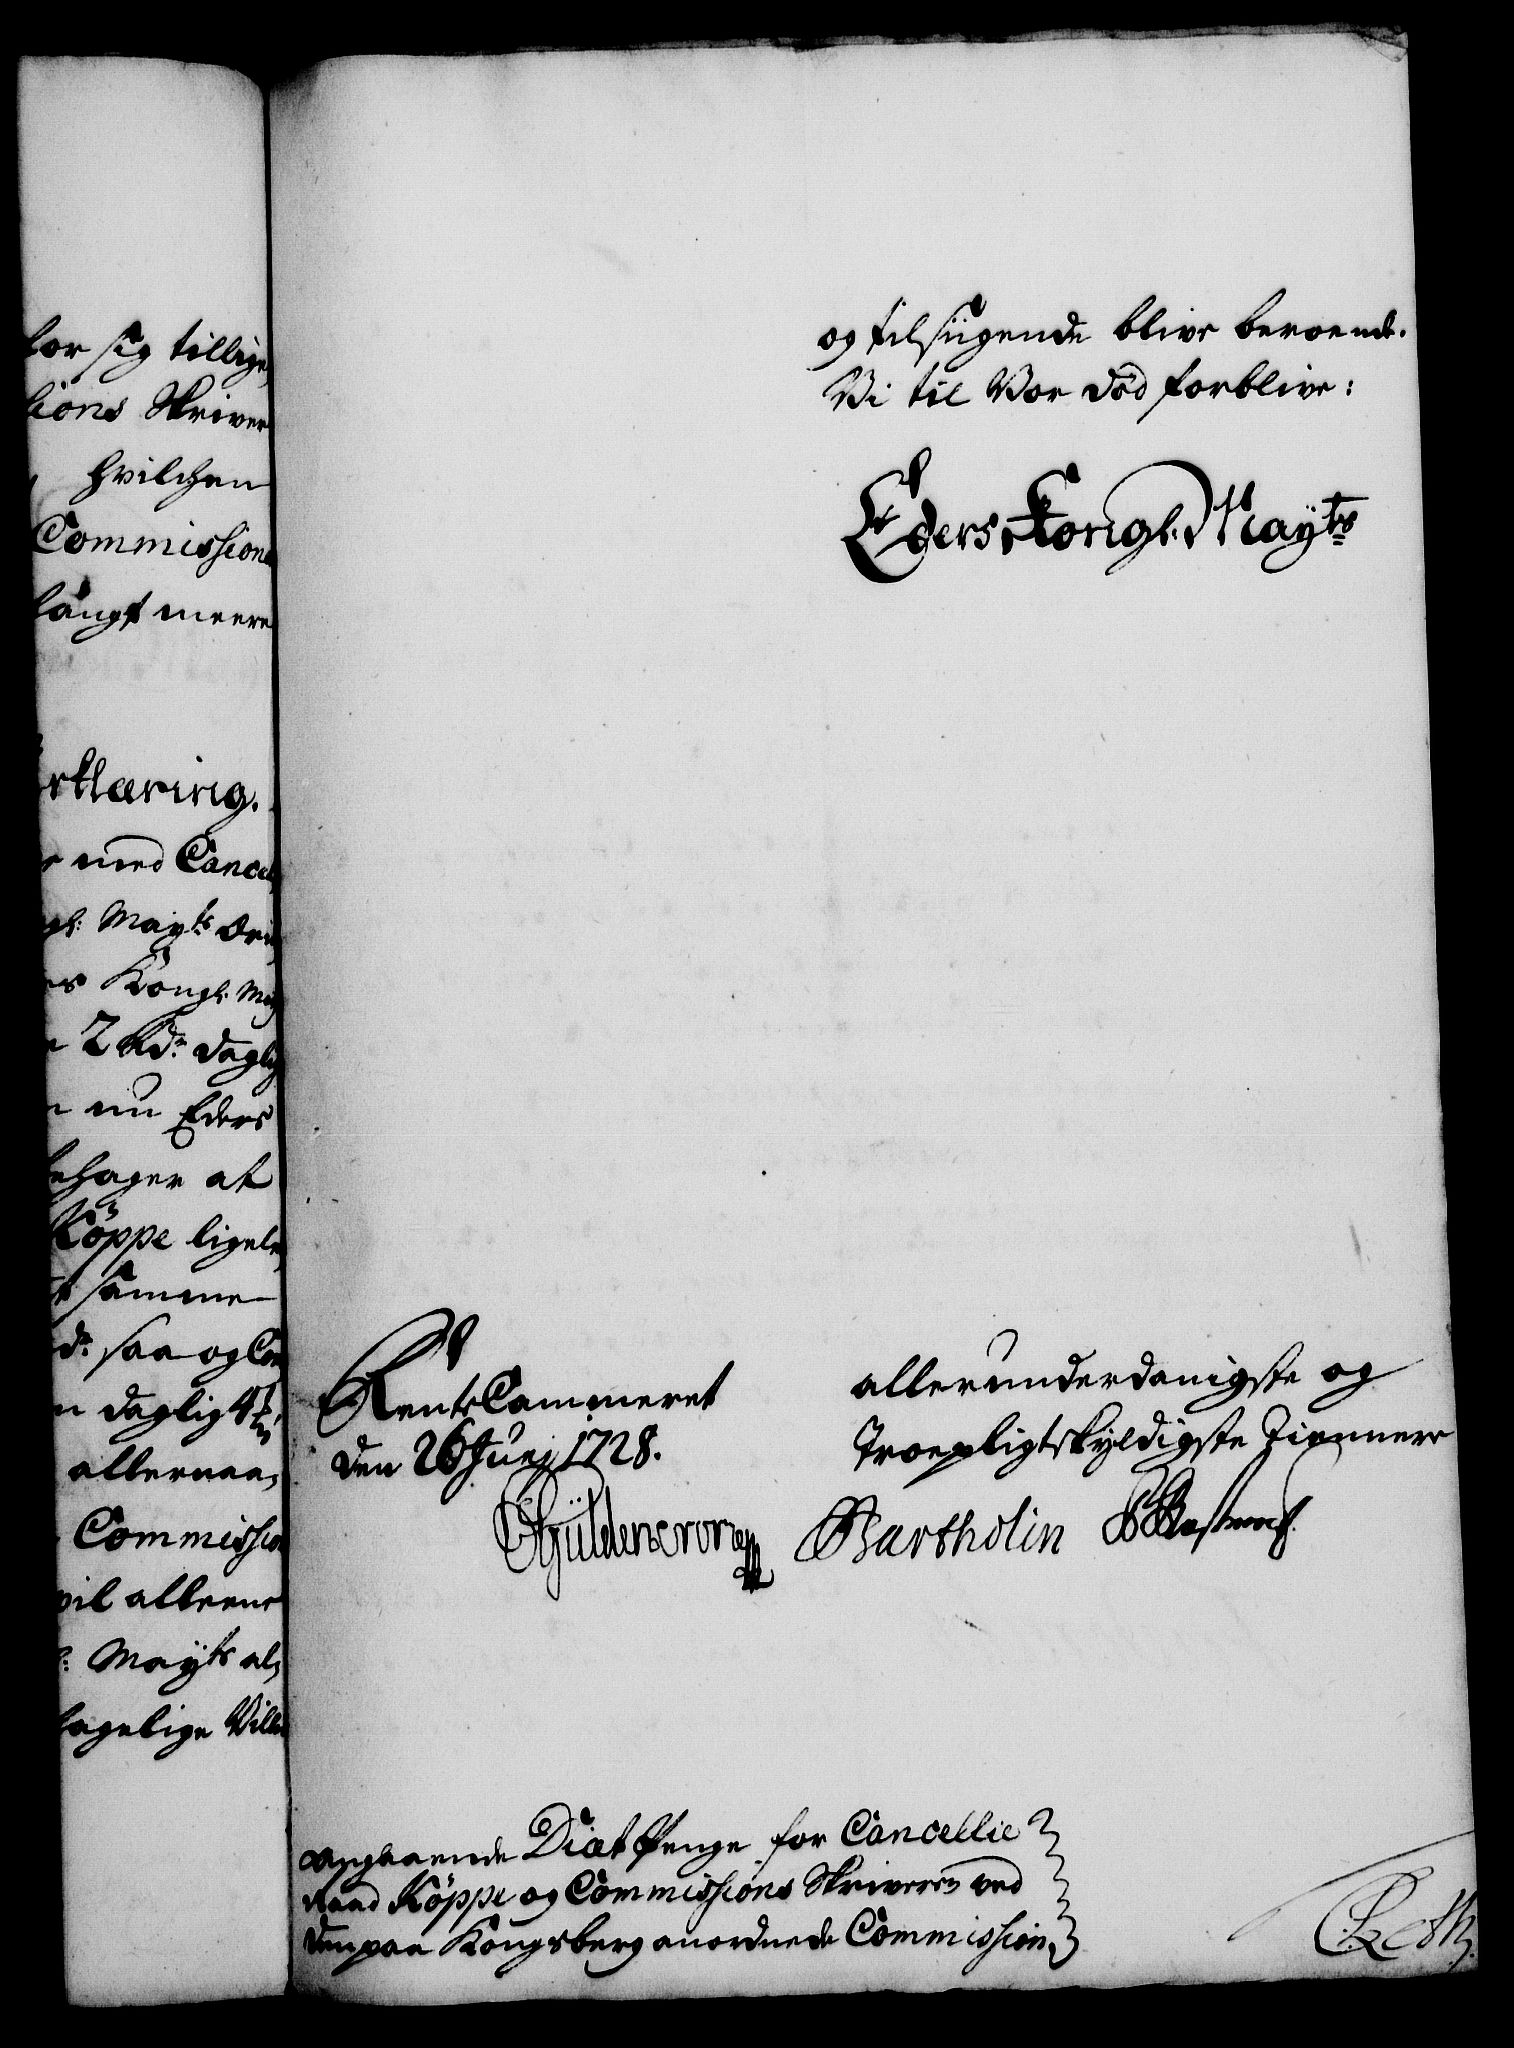 for sig tillige,
sions Skriver
hvilchen
Commissions
langt meere
rklæring.
med Cancel,
gl: Mayts
Kongl. May
2 Rdr daglig
nu Eders
behager at
Köppe ligele,
samme
dr saa og Com
daglig 4
allernaa,
Commission
vil alleene
Mayts al,
hagelige Villie
og tilsiigende blive beroende.
Vi til Vor død forblive:
Eders Kongl. Mayts
RenteCammeret
den 26 Junj 1728.
allerunderdanigste og
Troepligtskyldigste Tiennere
Güldencrone
Bartholin
angaaende Diæt Penge for Cancellie
Raad Köppe og Commissions Skriveren ved
den paa Kongsberg anordnede Commission